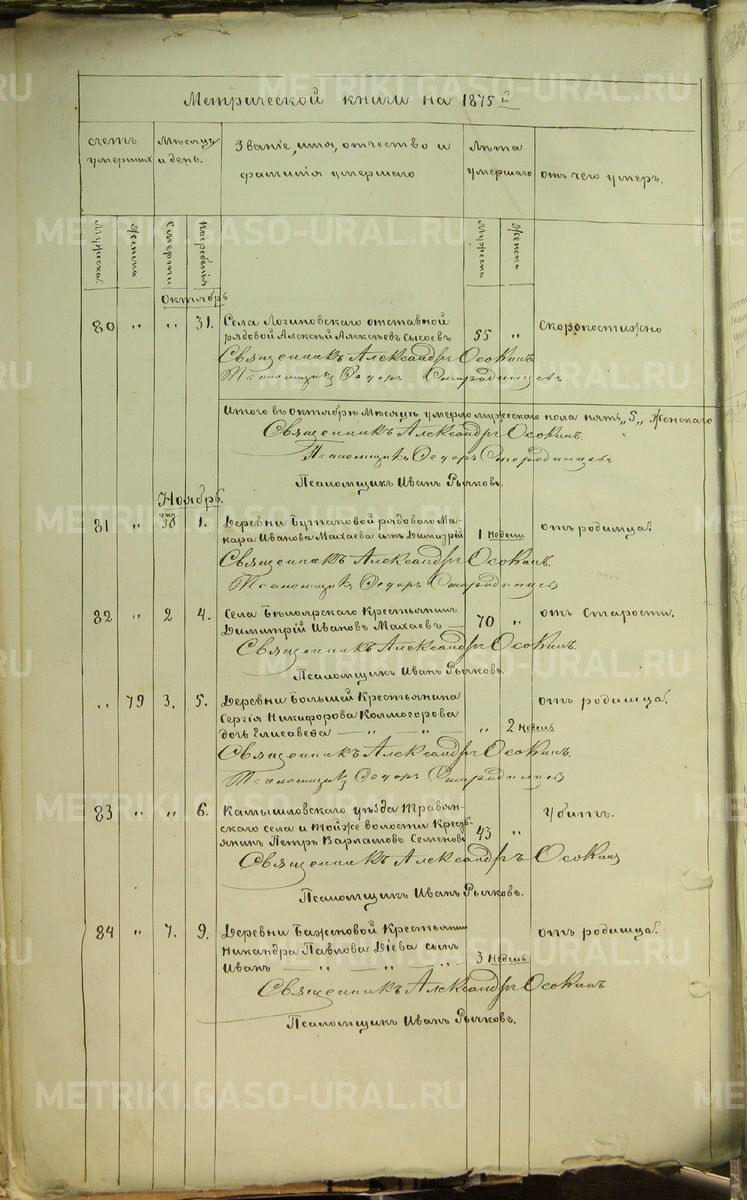 Метрической книги на 1875й
счетъ умершихъ
Мѣсяцъ и день.
Званіе, имя, отчество и
фамилія умершаго
Лѣта умершаго
отъ чего умеръ.
Мужеска
Женска
Смерти
Погребенія
Мужеска
Женска
Октябрь
80 " " 31. Села Логиновскаго отставной 55 " Скоропостижно
рядовой Алексѣй Алексѣевъ Сысоевъ
Священникъ Александръ Осокинъ
Псаломщикъ Ѳедоръ Смородинцевъ
Итого въ октябрѣ мѣсяцѣ умерло мужескаго пола пять „5„ Женскаго
Священникъ Александръ Осокинъ.
Псаломщикъ Ѳедоръ Смородинцевъ
Псаломщикъ Иванъ Рычковъ.
Ноябрь.
81 " 30 1. Деревни Бутаковой рядоваго Ма-
кара Иванова Махаева сынъ Димитрій 1 недели отъ родимца.
Священникъ Александръ Осокинъ.
Псаломщикъ Ѳедоръ Смородинцевъ
82 " 2 4. Села Бѣлоярскаго Крестьянинъ 70 " отъ Старости.
Димитрій Ивановъ Махаевъ —
Священникъ Александръ Осокинъ.
Псаломщикъ Иванъ Рычковъ.
" 79 3. 5. Деревни Большей Крестьянина отъ родимца.
Сергія Никифорова Колмогорова
дочь Елисавета — " — " — " 2 недель
Священникъ Александръ Осокинъ.
Псаломщикъ Ѳедоръ Смородинцевъ
83 " " 6. Камышловскаго уѣзда Травян- Убитъ.
скаго села и тойже волости Кресть-
янинъ Петръ Варламовъ Семеновъ 43 "
Священникъ Александръ Осокинъ
Псаломщикъ Иванъ Рычковъ.
84 " 7. 9. Деревни Баженовой Крестьянина отъ родимца.
Никандра Павлова Діева сынъ
Иванъ — " — " — " 3 недель
Священникъ Александръ Осокинъ
Псаломщикъ Иванъ Рычковъ.
METRIKI.GASO-URAL.RU